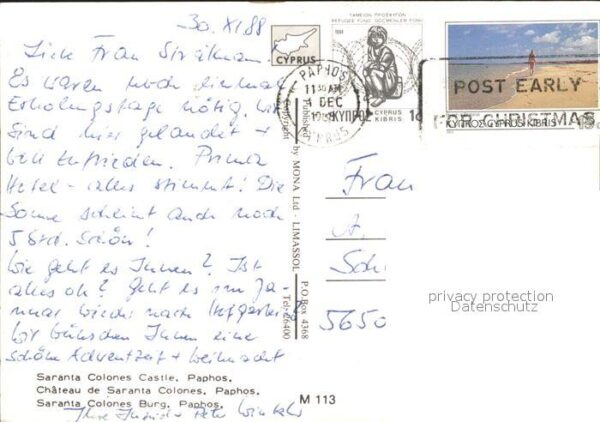 30. XI. 88
Liebe Frau
Es waren noch einmal
Erholungstage nötig. Wir
sind hier gelandet +
voll zufrieden. Prima
Hotel - alles stimmt! Die
Sonne scheint auch noch
5 Std. Schön!
Wie geht es Ihnen? Ist
alles ok? Geht es im Ja-
nuar wieder nach
Wir wünschen Ihnen eine
schöne Adventzeit + Weihnacht
Ihre + Peter
Saranta Colones Castle, Paphos.
Château de Saranta Colones, Paphos.
Saranta Colones Burg, Paphos.
M 113
Copyright Published by MONA Ltd - LIMASSOL P.O Box 4368
Tel: 26400
CYPRUS
ΤΑΜΕΙΟΝ ΠΡΟΣΦΥΓΩΝ
REFUGEE FUND GÖÇMENLER FONU
ΚΥΠΡΟΣ
CYPRUS
KIBRIS
1c
PAPHOS
11 30 AM
1 DEC
1988
CYPRUS
POST EARLY
FOR CHRISTMAS
ΚΥΠΡΟΣ CYPRUS KIBRIS
Frau
A.
Sch
5650
privacy protection
Datenschutz